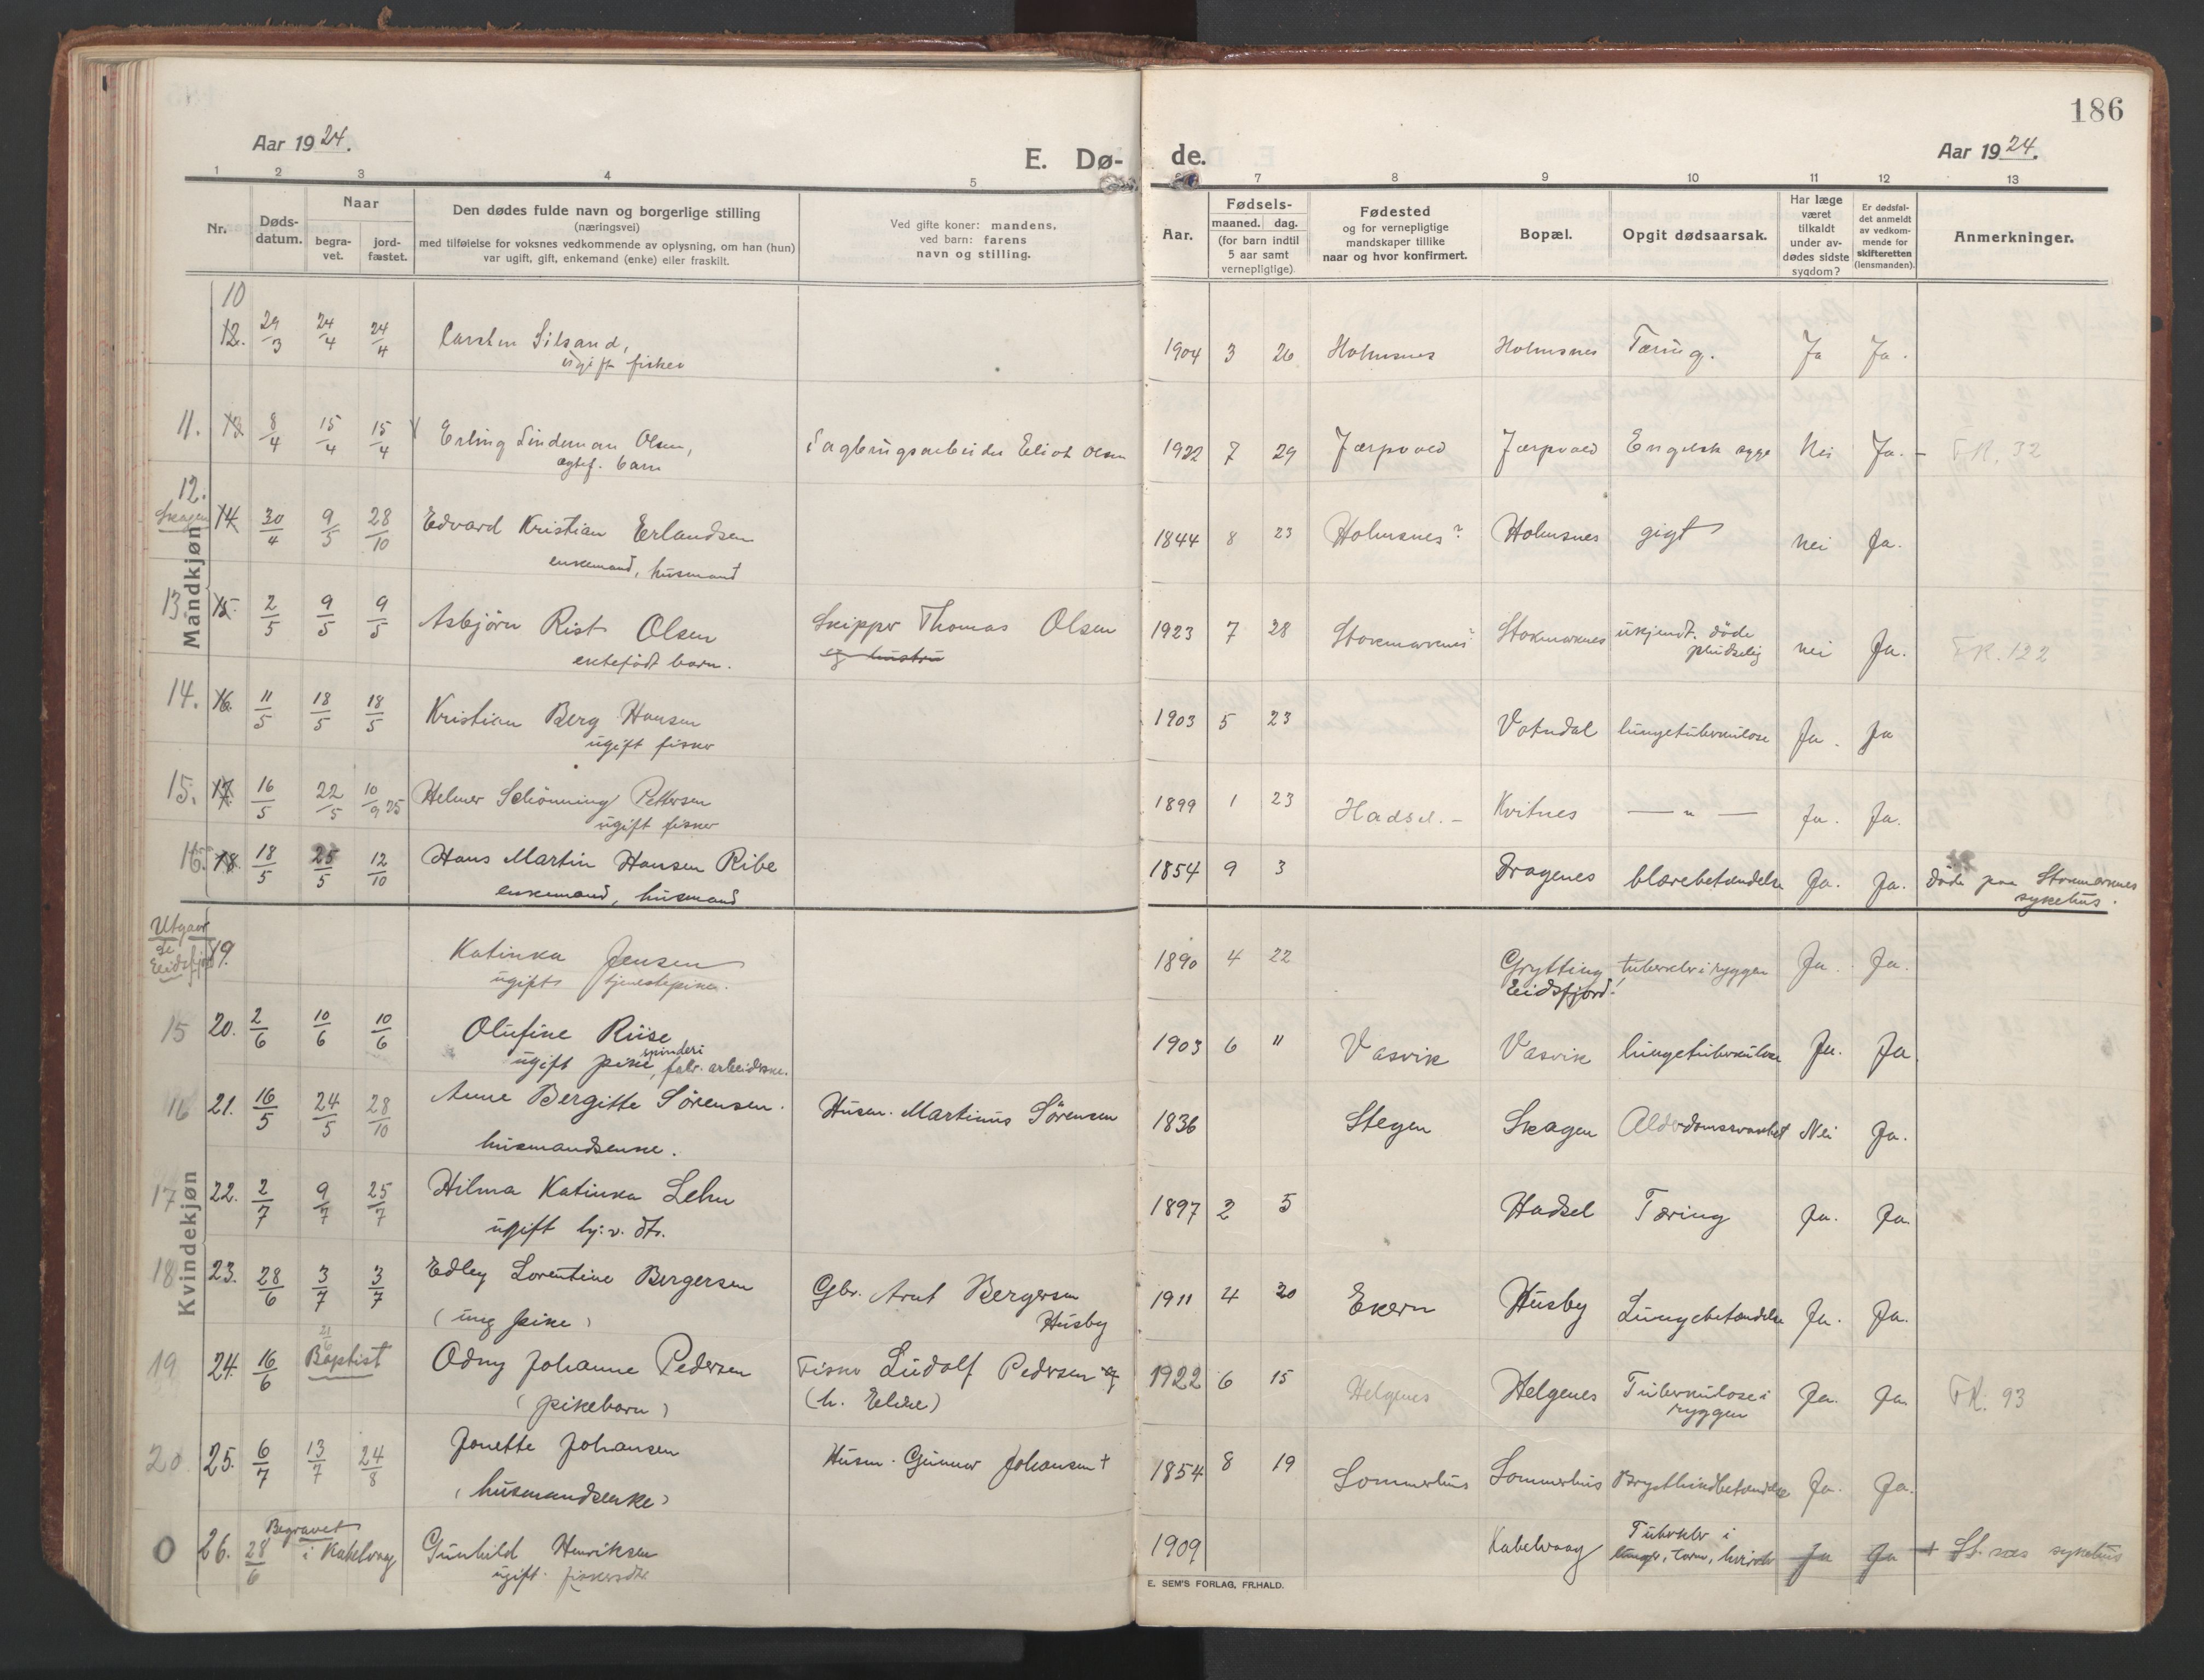 186
Aar 1924.
E. Dø-
de.
Aar 1924.
1 2 3 4 5 7 8 9 10 11 12 13
Nr.
Døds-
datum.
Naar
begra-
vet.
jord-
fæstet.
Den dødes fulde navn og borgerlige stilling
(næringsvei)
med tilføielse for voksnes vedkommende av oplysning, om han (hun)
var ugift, gift, enkemand (enke) eller fraskilt.
Ved gifte koner: mandens,
ved barn: farens
navn og stilling.
Aar.
Fødsels-
maaned. dag.
(for barn indtil
5 aar samt
vernepligtige).
Fødested
og for vernepligtige
mandskaper tillike
naar og hvor konfirmert.
Bopæl.
Opgit dødsaarsak.
Har læge
været
tilkaldt
under av-
dødes sidste
sygdom?
Er dødsfal-
det anmeldt
av vedkom-
mende for
skifteretten
(lensmanden).
Anmerkninger.
Mandkjøn
10
12. 29/3 24/4 24/4 Carsten Silsand, 1904 3 26 Holmsnes Holmsnes Tæring. Ja Ja.
ugift fisker
11. 13 8/4 15/4 15/4 Erling Lindeman Olsen, Sagbrugsarbeider Eliot Olsen 1922 7 29 Jærpvold Jærpvold Engelsk syge Nei Ja. - FR. 32
ægtef. barn
12.
Skagen 14 30/4 9/5 28/10 Edvard Kristian Erlandsen 1844 8 23 Holmsnes? Holmsnes gigt nei Ja.
enkemand, husmand
13. 15. 2/5 9/5 9/5 Asbjörn Rist Olsen Skipper Thomas Olsen 1923 7 28 Stokmarknes? Stokmarknes ukjendt. døde nei Ja. FR. 122
ektefødt barn. og hustru pludselig
14. 16. 11/5 18/5 18/5 Kristian Berg Hansen 1903 5 23 Vatndal lungetuberkulose Ja. Ja
ugift fisker
15. 17. 16/5 22/5 10/9 25 Helmer Schønning Pettersen 1899 1 23 Hadsel. - Kvitnes — " — Ja. Ja.
ugift fisker
16. 18. 18/5 25/5 12/10 Hans Martin Hansen Ribe 1854 9 3 Dragenes blærebetændelse Ja. Ja. döde paa Stokmarknes
enkemand, husmand sykehus.
Kvindekjøn
Utgaar
se
Eidsfjord 19. Katinka Jensen 1890 4 22 Grytting tuberkler i ryggen Ja. Ja.
ugift tjenestepike. Eidsfjord!
15 20. 2/6 10/6 10/6 Olufine Riise 1903 6 11 Vasvik Vasvik lungetuberkulose Ja. Ja.
spinderi
ugift pike, fabr. arbeiderske.
16 21. 16/5 24/5 28/10 Anne Bergitte Sörensen. Husm. Martinus Sörensen 1836 Stegen Skagen Alderdomssvakhet Nei Ja.
husmandsenke.
17 22. 2/7 9/7 25/7 Hilma Katinka Lehn 1897 2 5 Hadsel Tæring Ja. Ja.
ugift hj.v. dtr.
18 23. 28/6 3/7 3/7 Edley Lorentine Bergersen Gbr. Arnt Bergersen 1911 4 30 Ekern Husby Lungebetændelse Ja. Ja.
(ung pike) Husby
21/6
19 24. 16/6 Baptist Odny Johanne Pedersen Fisker Ludolf Pedersen og 1922 6 15 Helgenes Helgenes Tuberkulose i Ja. Ja FR. 93
(pikebarn) (h. Elche) ryggen
20 25. 6/7 13/7 24/8 Jonette Johansen Husm. Gunnar Johansen + 1854 8 19 Sommerhus Sommerhus Brysthindbetændelse Ja. Ja.
(husmandsenke)
Begravet
0 26. 28/6 i Kabelvaag Gunhild Henriksen 1909 Kabelvaag Tuberkler i Ja Ja + St. nes sykehus
ugift. fiskersdtr. lunger, tarm, hvirvler
E. SEM'S FORLAG, FR.HALD.